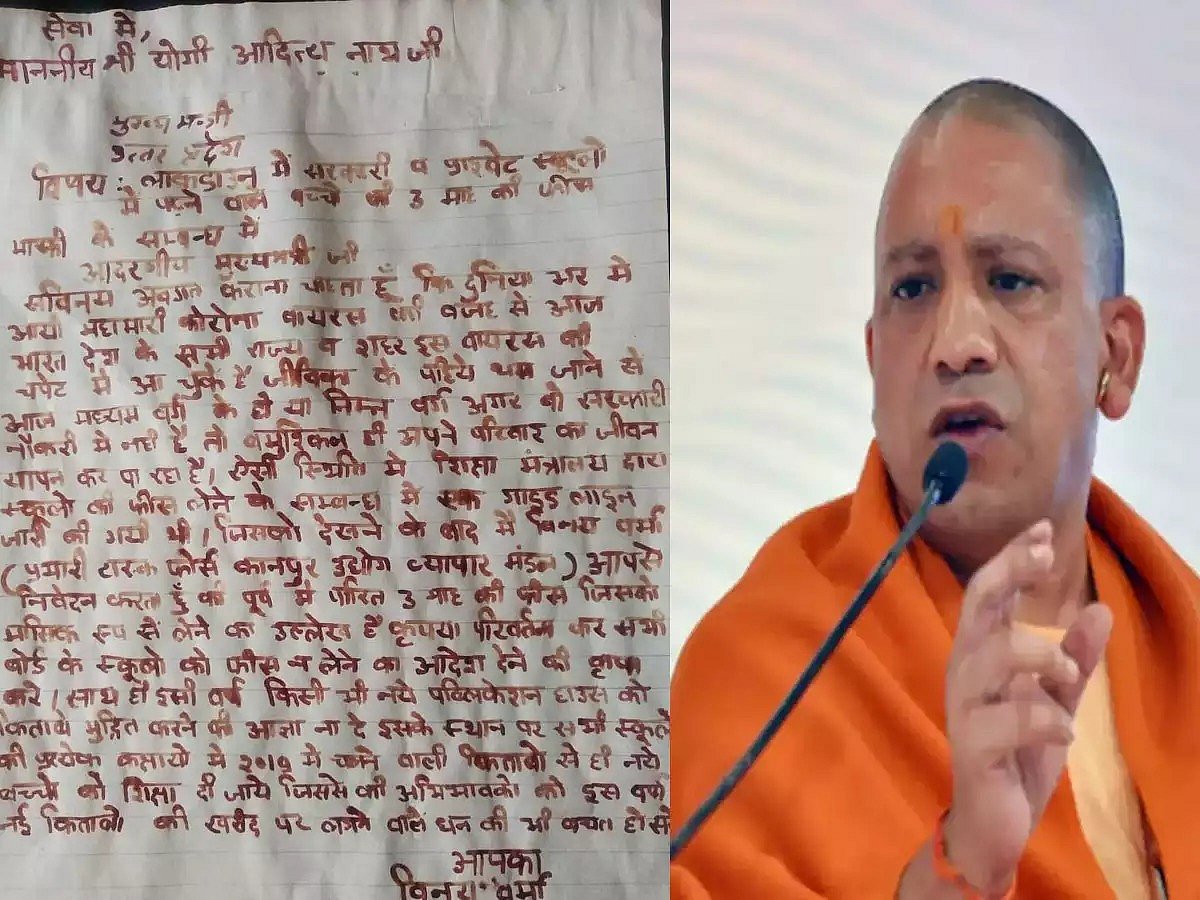 सेवा मे,
माननीय श्री योगी आदित्य नाथ जी
मुख्य मन्त्री
उत्तर प्रदेश
विषय : लाकडाउन में सरकारी व प्राइवेट स्कूलो
मे पढ़ने वाले बच्चे की 3 माह की फीस
माफी के सम्बन्ध में
आदरणीय मुख्यमंत्री जी
सविनय अवगत कराना चाहता हूँ कि दुनिया भर मे
आयी महामारी कोरोना वायरस की वजह से आज
भारत देश के सभी राज्य व शहर इस वायरस की
चपेट मे आ चुके है जीविका के पहिये थम जाने से
आज मध्यम वर्ग के हो या निम्न वर्ग अगर वो सरकारी
नौकरी मे नही है तो बमुश्किल ही अपने परिवार का जीवन
यापन कर पा रहा है। ऐसी स्थिति मे शिक्षा मंत्रालय द्वारा
स्कूलो की फीस लेने के सम्बन्ध मे एक गाइड लाइन
जारी की गयी थी। जिसको देखने के बाद मै विनय वर्मा
(प्रभारी टास्क फोर्स कानपुर उद्योग व्यापार मंडल) आपसे
निवेदन करता हूँ की पूर्व मे पारित 3 माह की फीस जिसके
मासिक रूप सें लेने का उल्लेख है कृपया परिवर्तन कर सभी
बोर्ड के स्कूलो को फीस न लेने का आदेश देने की कृपा
करे। साथ ही इसी वर्ष किसी भी नये पब्लिकेशन हाउस को
किताबे मुद्रित करने की आज्ञा ना दे इसके स्थान पर सभी स्कूलो
की प्रत्येक कक्षायो मे २०१९ मे चलने वाली किताबो से ही नये
बच्चो को शिक्षा दी जाये जिससे की अभिभावको को इस वर्ष
नई किताबो की खरीद पर लगने वाले धन की भी बचत हो सके
आपका
विनय वर्मा